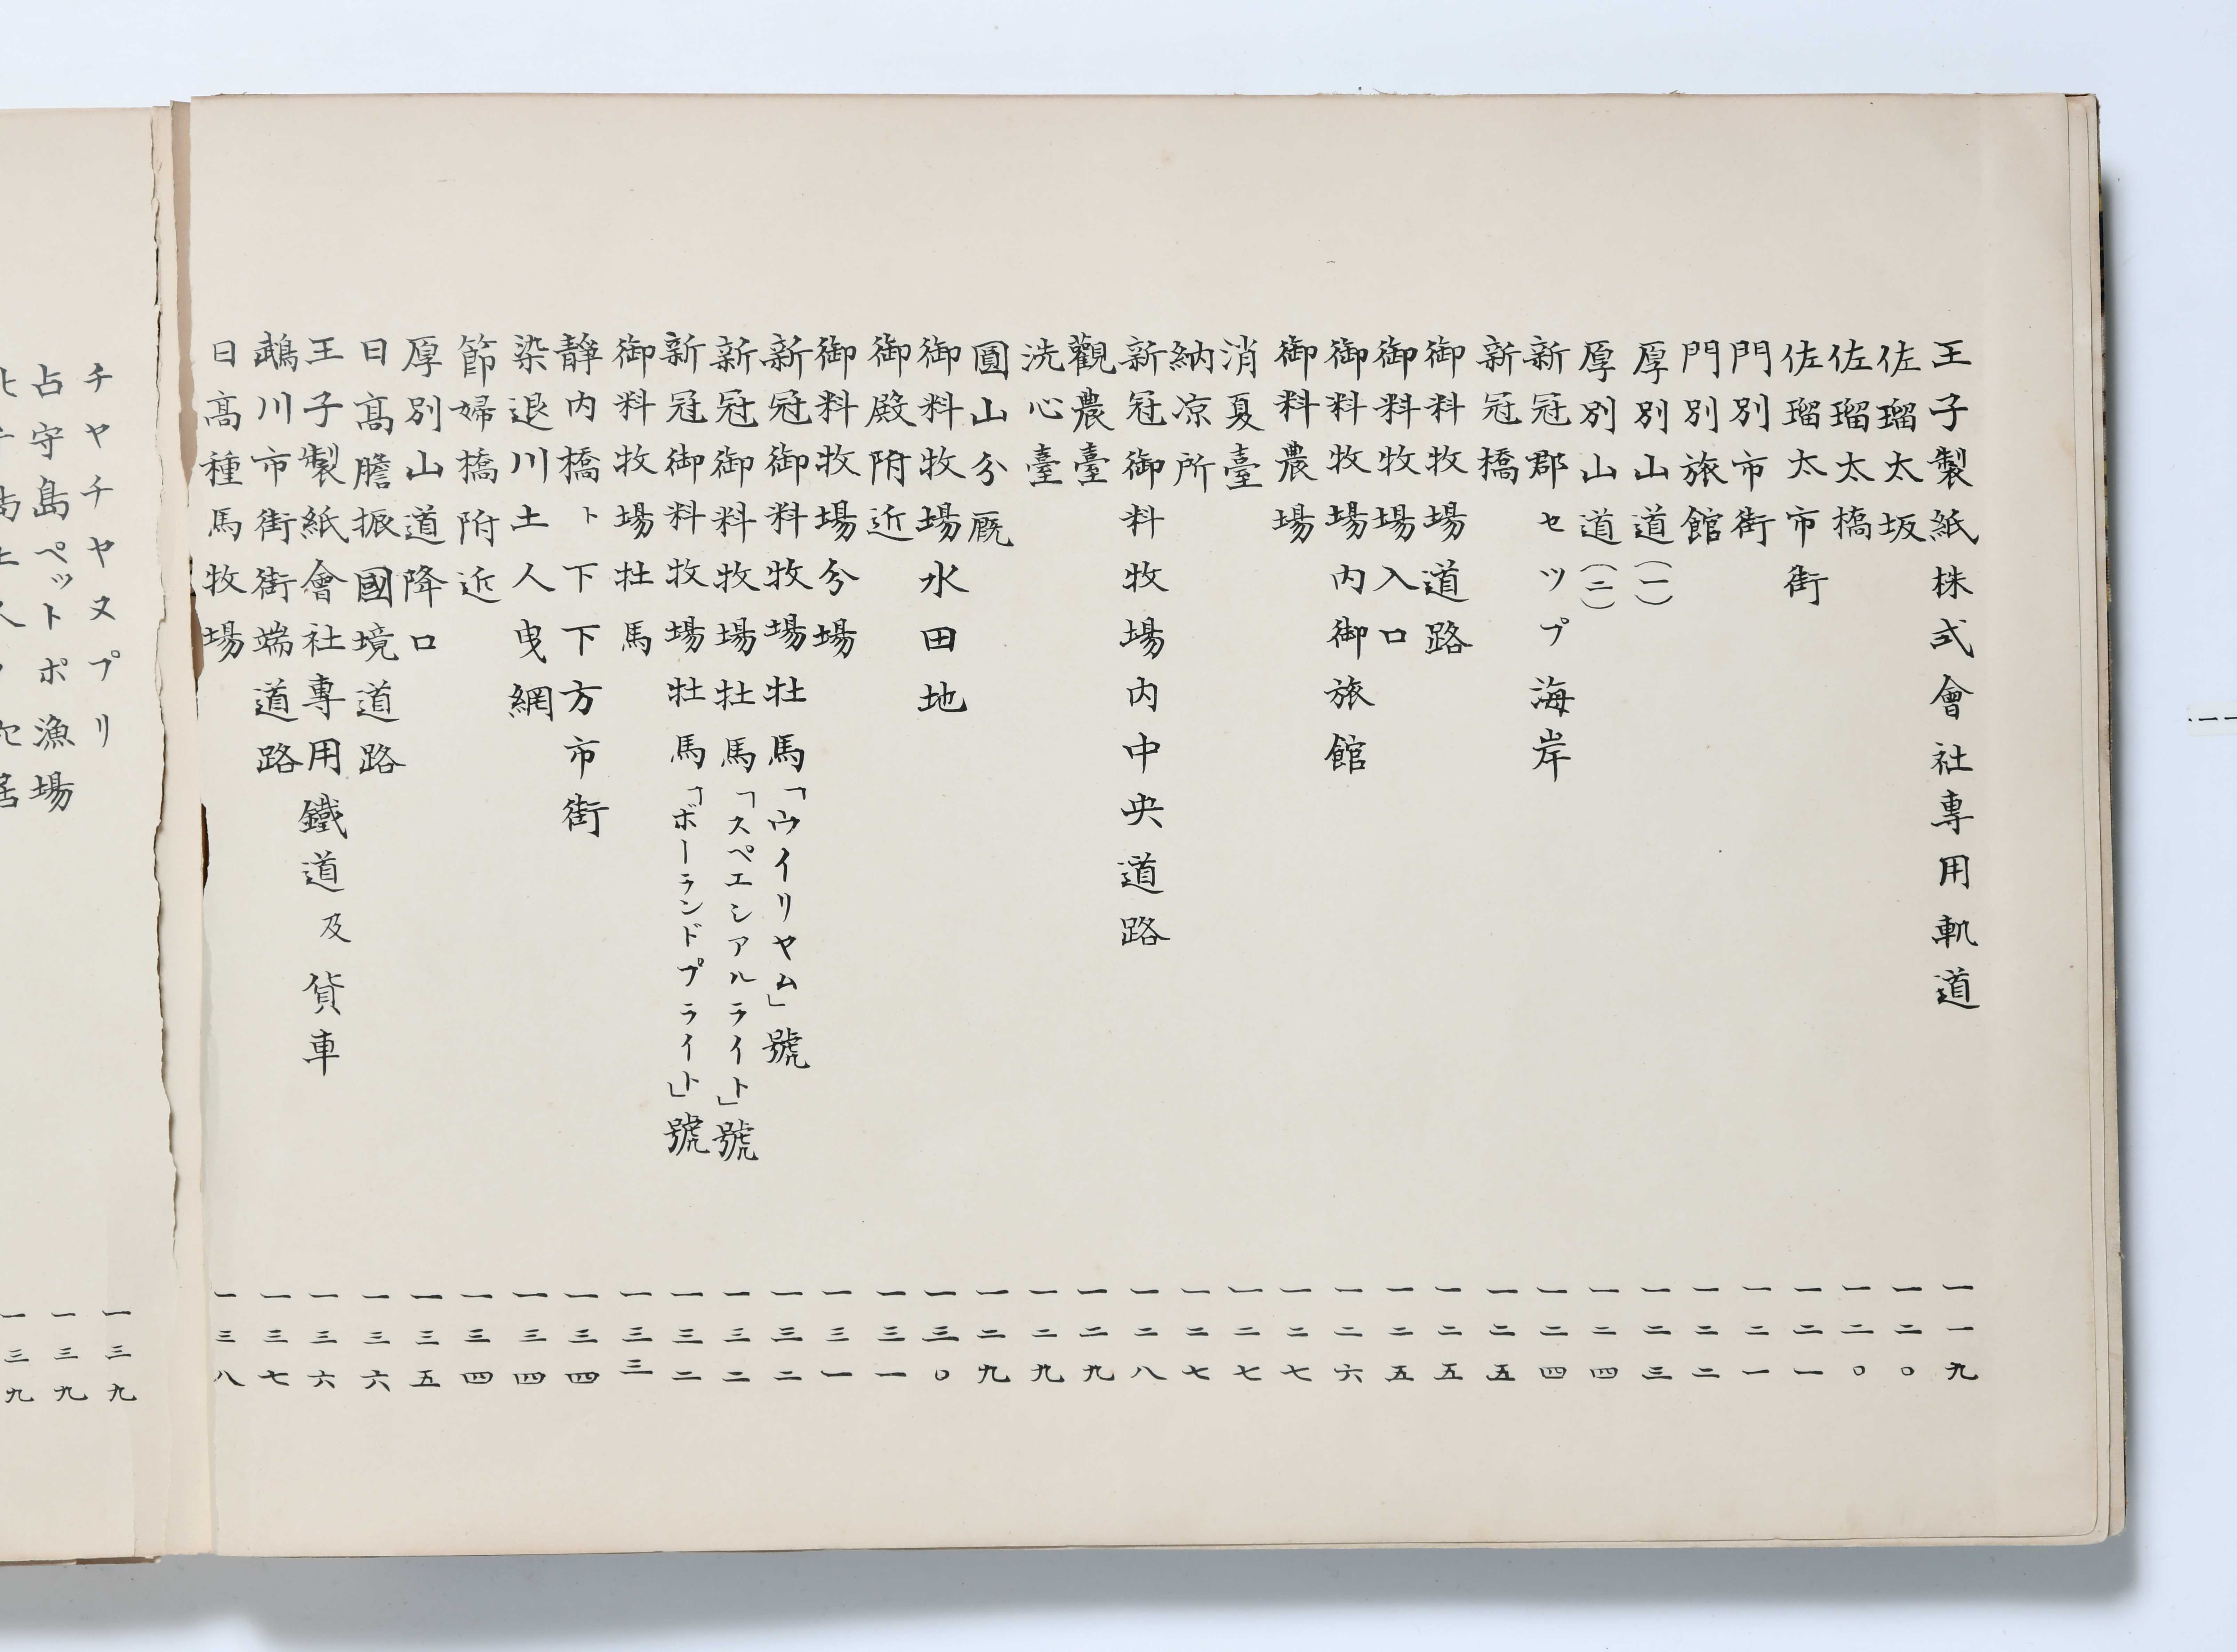 王子製紙株式會社專用軌道 一一九
佐瑠太坂 一二〇
佐瑠太橋 一二〇
佐瑠太市街 一二一
門別市街 一二一
門別旅館 一二二
厚別山道(一) 一二三
厚別山道(二) 一二四
新冠郡セツプ海岸 一二四
新冠橋 一二五
御料牧場道路 一二五
御料牧場入口 一二五
御料牧場内御旅館 一二六
御料農場 一二七
消夏臺 一二七
納凉所 一二七
新冠御料牧場内中央道路 一二八
觀農臺 一二九
洗心臺 一二九
圓山分厩 一二九
御料牧場水田地 一三〇
御殿附近 一三一
御料牧場分場 一三一
新冠御料牧場牡馬「ウイリヤム」號 一三二
新冠御料牧場牡馬「スペエシアルライト」號 一三二
新冠御料牧場牡馬「ボーランドプライト」號 一三二
御料牧場牡馬 一三三
靜内橋ト下下方市街 一三四
染退川土人曳網 一三四
節婦橋附近 一三四
厚別山道降口 一三五
日髙膽振國境道路 一三六
王子製紙會社專用鐵道及貨車 一三六
鵡川市街街端道路 一三七
日髙種馬牧場 一三八
チヤチヤヌプリ 一三九
占守島ペットポ漁場 一三九
一三九